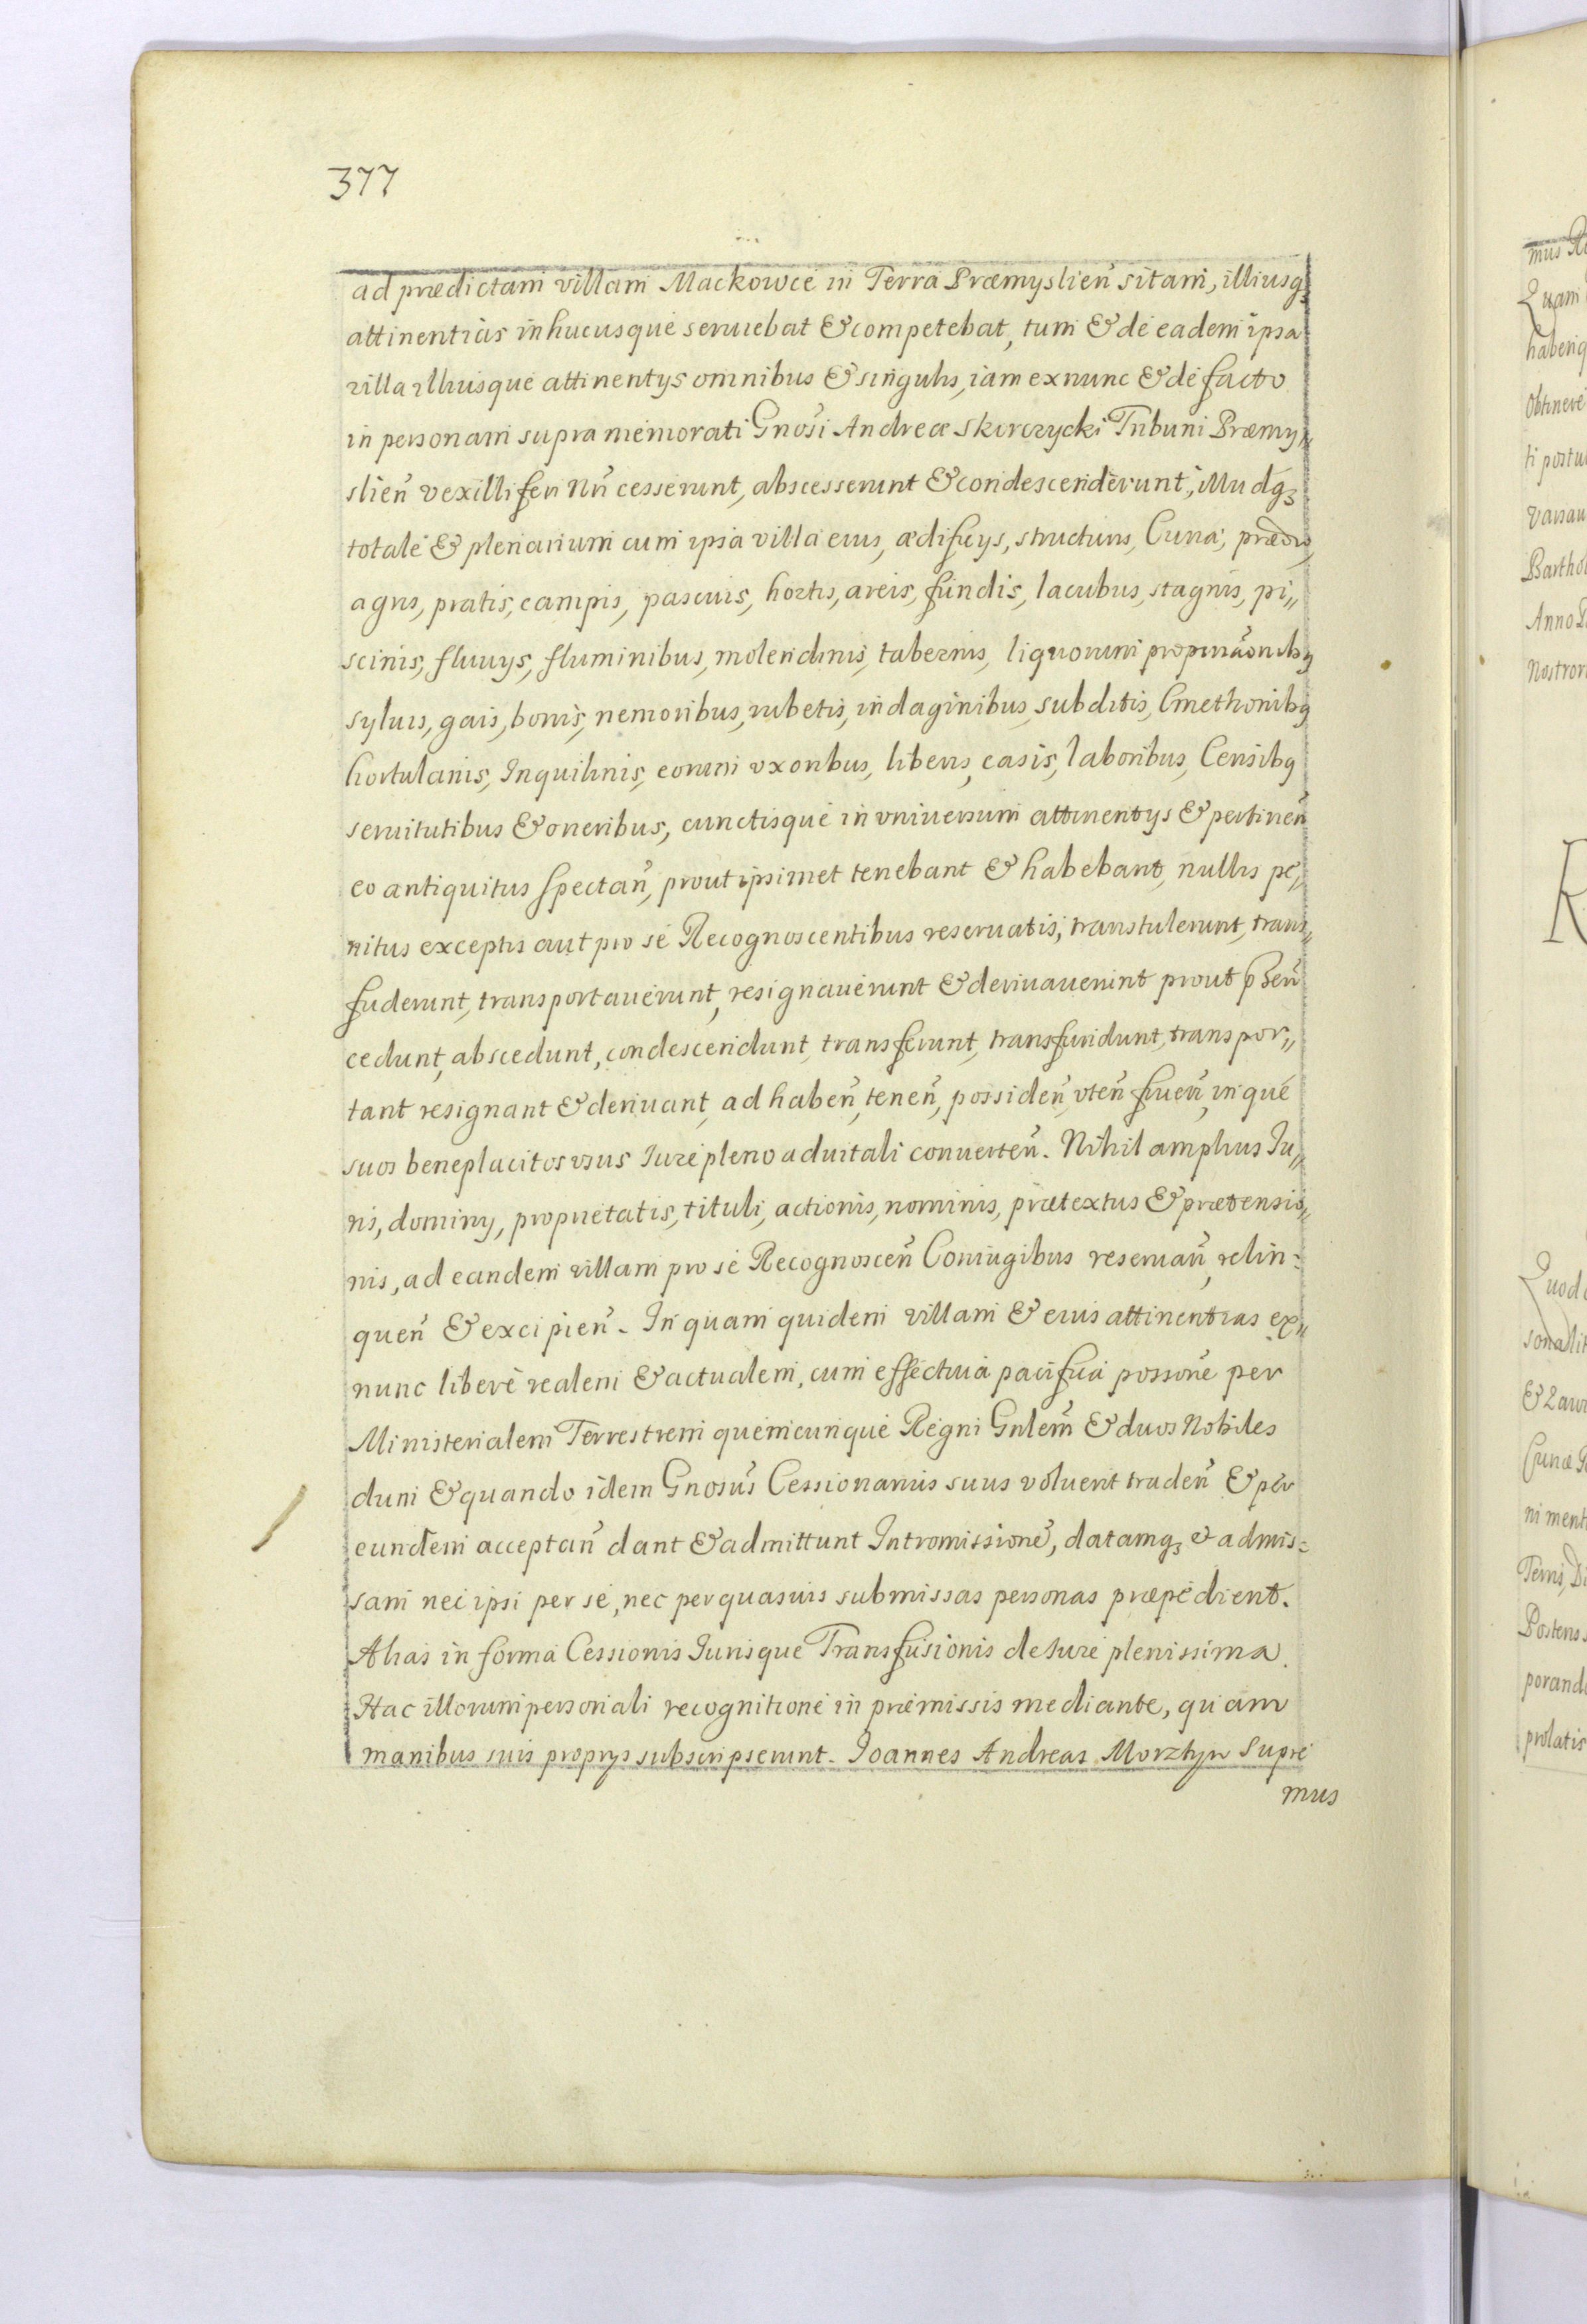 377
ad prædictam villam Mackowce in Terra Præmyslien̄ sitam, illiusq₃
attinentias inhucusque seruiebat & competebat, tum & de eadem ipsa
villa illiusque attinentys omnibus & singulis, iam exnunc & de facto
in personam supra memorati Gnosi Andreæ Skirczycki Tribuni Præmy„
slien̄ vexilliferi Nri cesserunt, abscesserunt & condescenderunt, illudq₃
totale & plenarium cum ipsa villa eius, ædificys, structuris, Curia, prædio,
agris, pratis, campis, pascuis, hortis, areis, fundis, lacubus, stagnis, pi„
scinis, fluuys, fluminibus, molendinis, tabernis, liquorum propinãonibq
syluis, gais, borris, nemoribus, rubetis, indaginibus, subditis, Cmethonibq
hortulanis, Inquilinis, eorum vxoribus, liberis, casis, laboribus, Censibq
seruitutibus & oneribus, cunctisque in vniuersum attinentys & pertinen̄
eo antiquitus spectan̄, prout ipsimet tenebant & habebant, nullis pe„
nitus exceptis aut pro se Recognoscentibus reseruatis, transtulerunt, trans„
fuderunt, transportauerunt, resignauerunt & deriuauerunt prout p̄sen̄
cedunt, abscedunt, condescendunt, transferunt, transfundunt, transpor„
tant resignant & deriuant, ad haben̄, tenen̄, possiden̄, vten̄ fruen̄, inque
suos beneplacitos vsus Iure pleno aduitali conuerten̄. Nihil amplius Iu„
ris, dominy, proprietatis, tituli, actionis, nominis, prætextus & prætensio„
nis, ad eandem villam pro se Recognoscen̄ Coniugibus reseruan̄, relin=
quen̄ & excipien̄. In quam quidem villam & eius attinentias ex„
nunc liberè realem & actualem, cum effectiua pacifica possone per
Ministerialem Terrestrem quemcunque Regni Gnlem̄ & duos Nobiles
dum & quando idem Gnosus Cessionarius suus voluerit traden̄ & per
eundem acceptan̄ dant & admittunt Intromissionē, datamq₃ & admis=
sam nec ipsi per se, nec per quasuis submissas personas præpedient.
Alias in forma Cessionis Iurisque Transfusionis de Iure plenissima.
Hac illorum personali recognitione in præmissis mediante, quam
manibus suis proprys subscripserunt. Joannes Andreas Morztyn Supre
mus